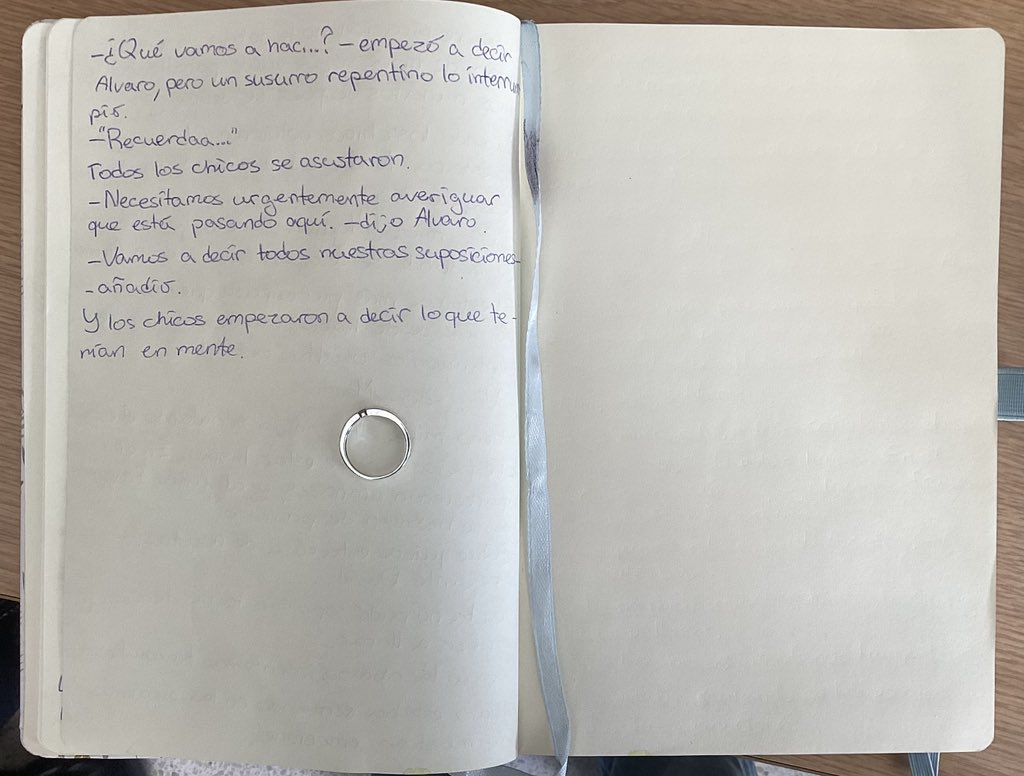 -¿Qué vamos a hac...? - empezó a decir
Alvaro, pero un susurro repentino lo interrum
pió.
-"Recuerdaa..."
Todos los chicos se asustaron.
-Necesitamos urgentemente averiguar
que está pasando aquí. -dijo Alvaro.
-Vamos a decir todos nuestras suposiciones-
-añadió.
Y los chicos empezaron a decir lo que te-
nían en mente.